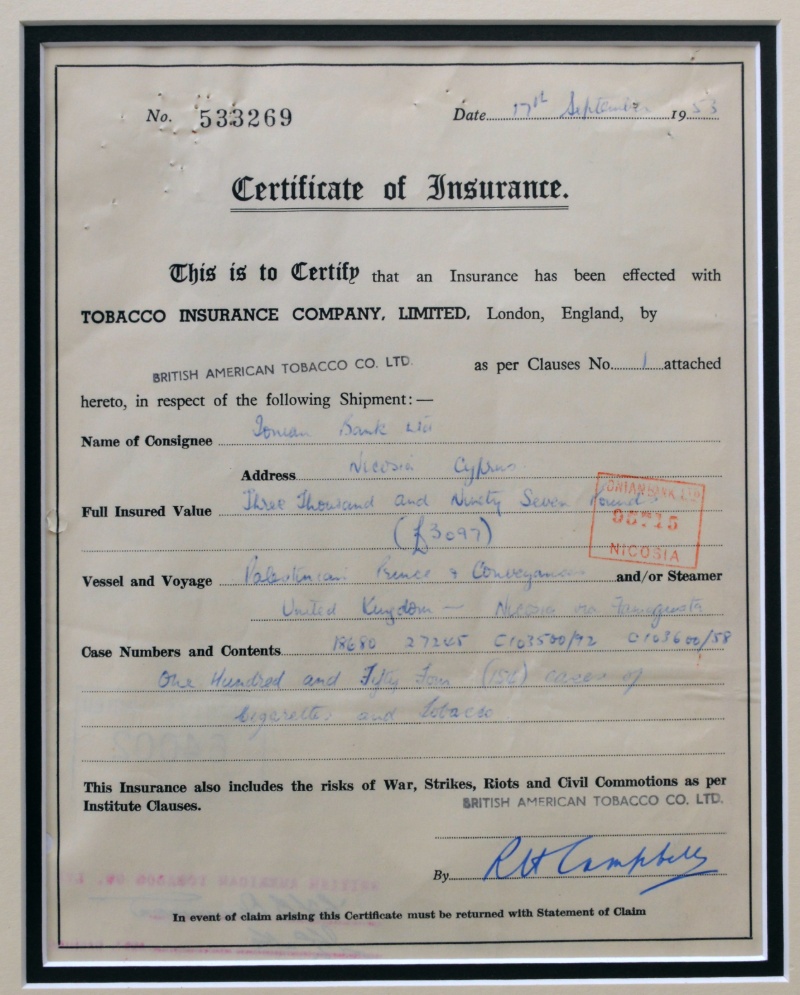 No. 533269 Date 17th September 1953
Certificate of Insurance.
This is to Certify that an Insurance has been effected with
TOBACCO INSURANCE COMPANY, LIMITED, London, England, by
BRITISH AMERICAN TOBACCO CO. LTD. as per Clauses No. 1 attached
hereto, in respect of the following Shipment:—
Name of Consignee Ionian Bank Ltd
Address Nicosia Cyprus
Full Insured Value Three Thousand and Ninety Seven Pounds
IONIAN BANK LTD
(£3097)
NICOSIA
Vessel and Voyage Palestinian Prince & Conveyances and/or Steamer
United Kingdom — Nicosia via Famagusta
Case Numbers and Contents 18680 27245 C103500/92 C103600/58
One Hundred and Fifty Four (154) cases of
Cigarettes and Tobacco
This Insurance also includes the risks of War, Strikes, Riots and Civil Commotions as per
Institute Clauses.
BRITISH AMERICAN TOBACCO CO. LTD.
By R H Campbell
In event of claim arising this Certificate must be returned with Statement of Claim